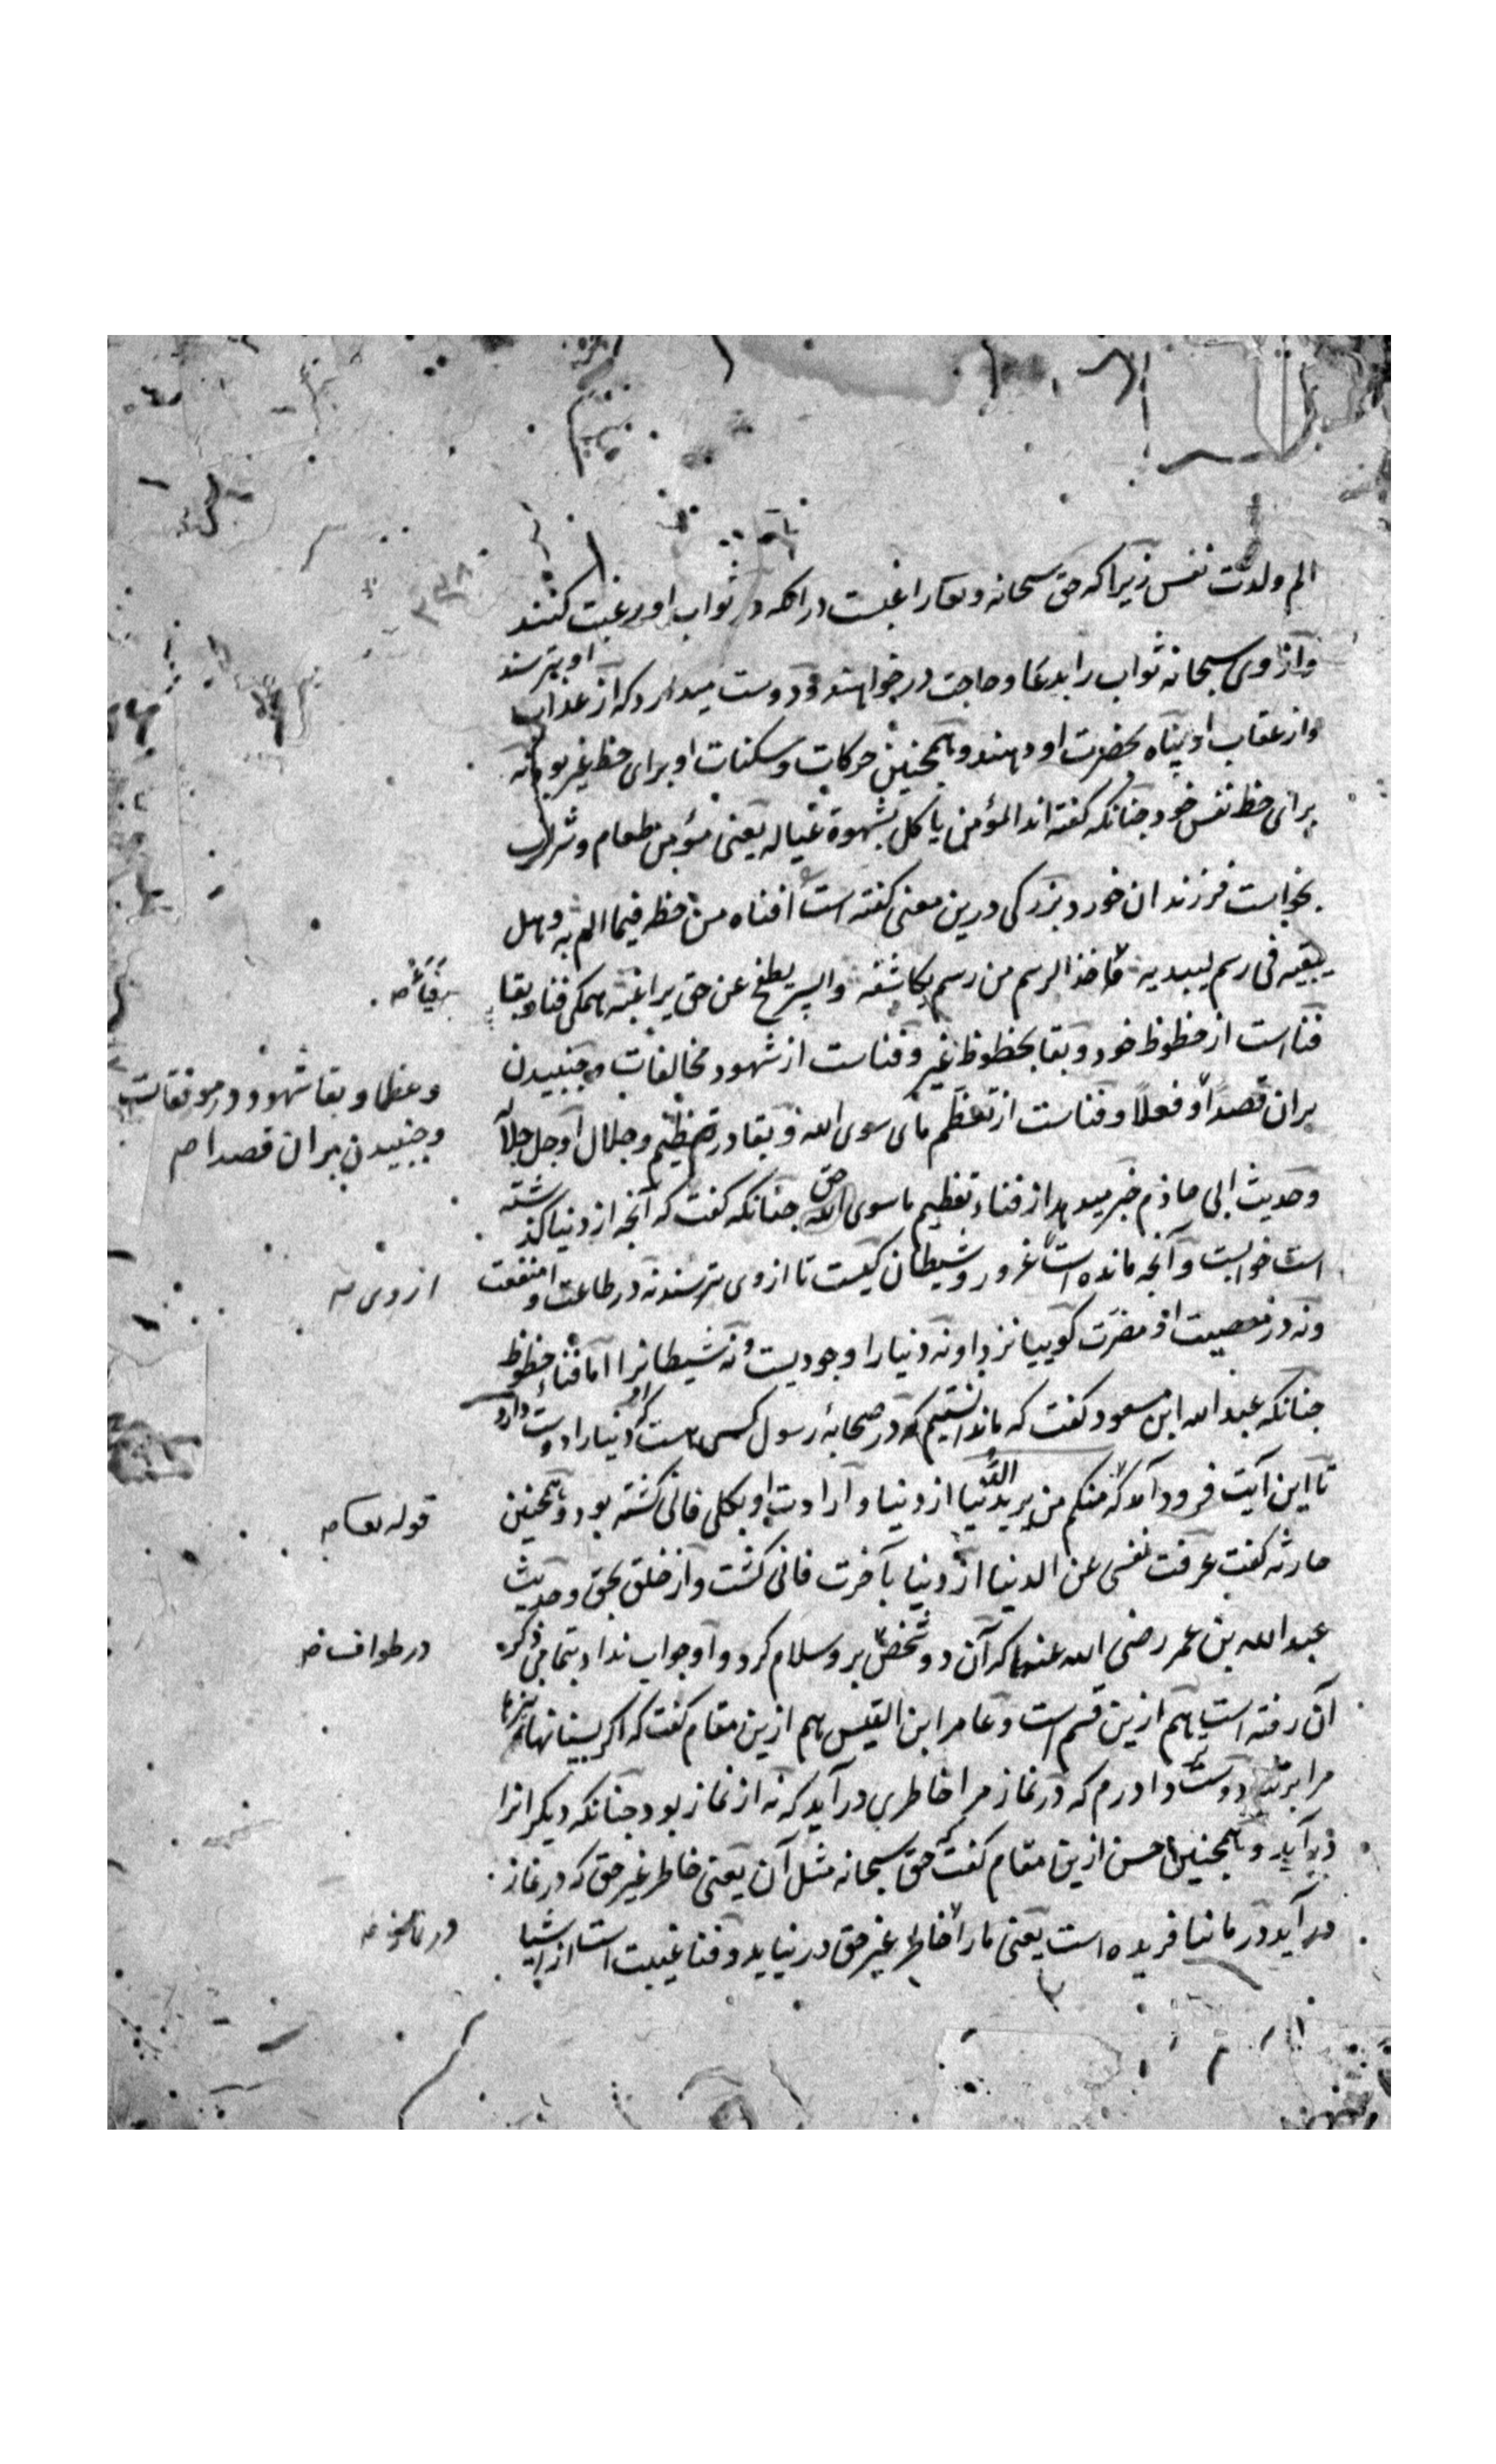 الم ولدت نفس زیرا که حق سبحانه وتعا را غبست در انکه در ثواب او رغبت کنند
وازوی سبحانه ثواب را بدعا وحاجت درخواهند ودوست میدارد که از عذاب او بترسند
واز عقاب او پناه بحضرت او دهند وهمچنین حرکات وسکنات او برای حظ غیر بود نه
برای حظ نفس خود چنانکه گفته اند المؤمن یاکل بشهوة عیاله یعنی مؤمن طعام وشراب
بخواست فرزندان خورد بزرکی درین معنی کفته است افناه من حظه فیما الم به
یبقیه فی رسم لیبدیه فاخذ الرسم من رسم یکاشفه والسر یطفح عن حق یراغبه همکی فنا وبقا
فناست از حظوظ خود وبقا بحظوظ غیر وفناست از شهود مخالفات وجنبیدن
بران قصدا وفعلا وفناست از تعظیم ما سوی الله وبقا در تعظیم وجلال او جل جلاله
وحدیث ابی حازم خبر میدهد از فناء تعظیم ما سوی الله حق چنانکه کفت که آنچه از دنیا کذشته
است خوابست وآنچه مانده است غرور وشیطان کیست تا از وی بترسند نه در طاعت او منفعت
ونه در معصیت او مضرت کوییا نزد او نه دنیا را وجودیست ونه شیطانرا اما فناء حظوظ
چنانکه عبد الله ابن مسعود کفت که ما ندانستیم که در صحابهٔ رسول کسی هست که او دنیا را دوست دارد
تا این آیت فرود آمد که منکم من یرید الدنیا از دنیا وارادت او بکلی فانی کشته بود وهمچنین
حارثه کفت عرفت نفسی عن الدنیا از دنیا بآخرت فانی کشت واز خلق بحق وحدیث
عبد الله بن عمر رضی الله عنهما که آن دو شخص برو سلام کرد واو جواب نداد بتمامی ذکر
آن رفته است هم ازین قسم است وعامر ابن القیس هم ازین مقام کفت که اکر
مرا دوستر دارم که در نماز مرا خاطری درآید که نه از نماز بود چنانکه دیکرانرا
درآید وهمچنین حسن ازین مقام کفت که حق سبحانه مثل آن یعنی خاطر غیر حق که در نماز
درآید در ما نیافریده است یعنی ما را خاطر غیر حق در نیاید وفنا غیبت است از اشیا
وعظما وبقا شهود در موفقات
وجنبیدن بران قصدا صح
از وی صح
قوله تعا صح
در طواف صح